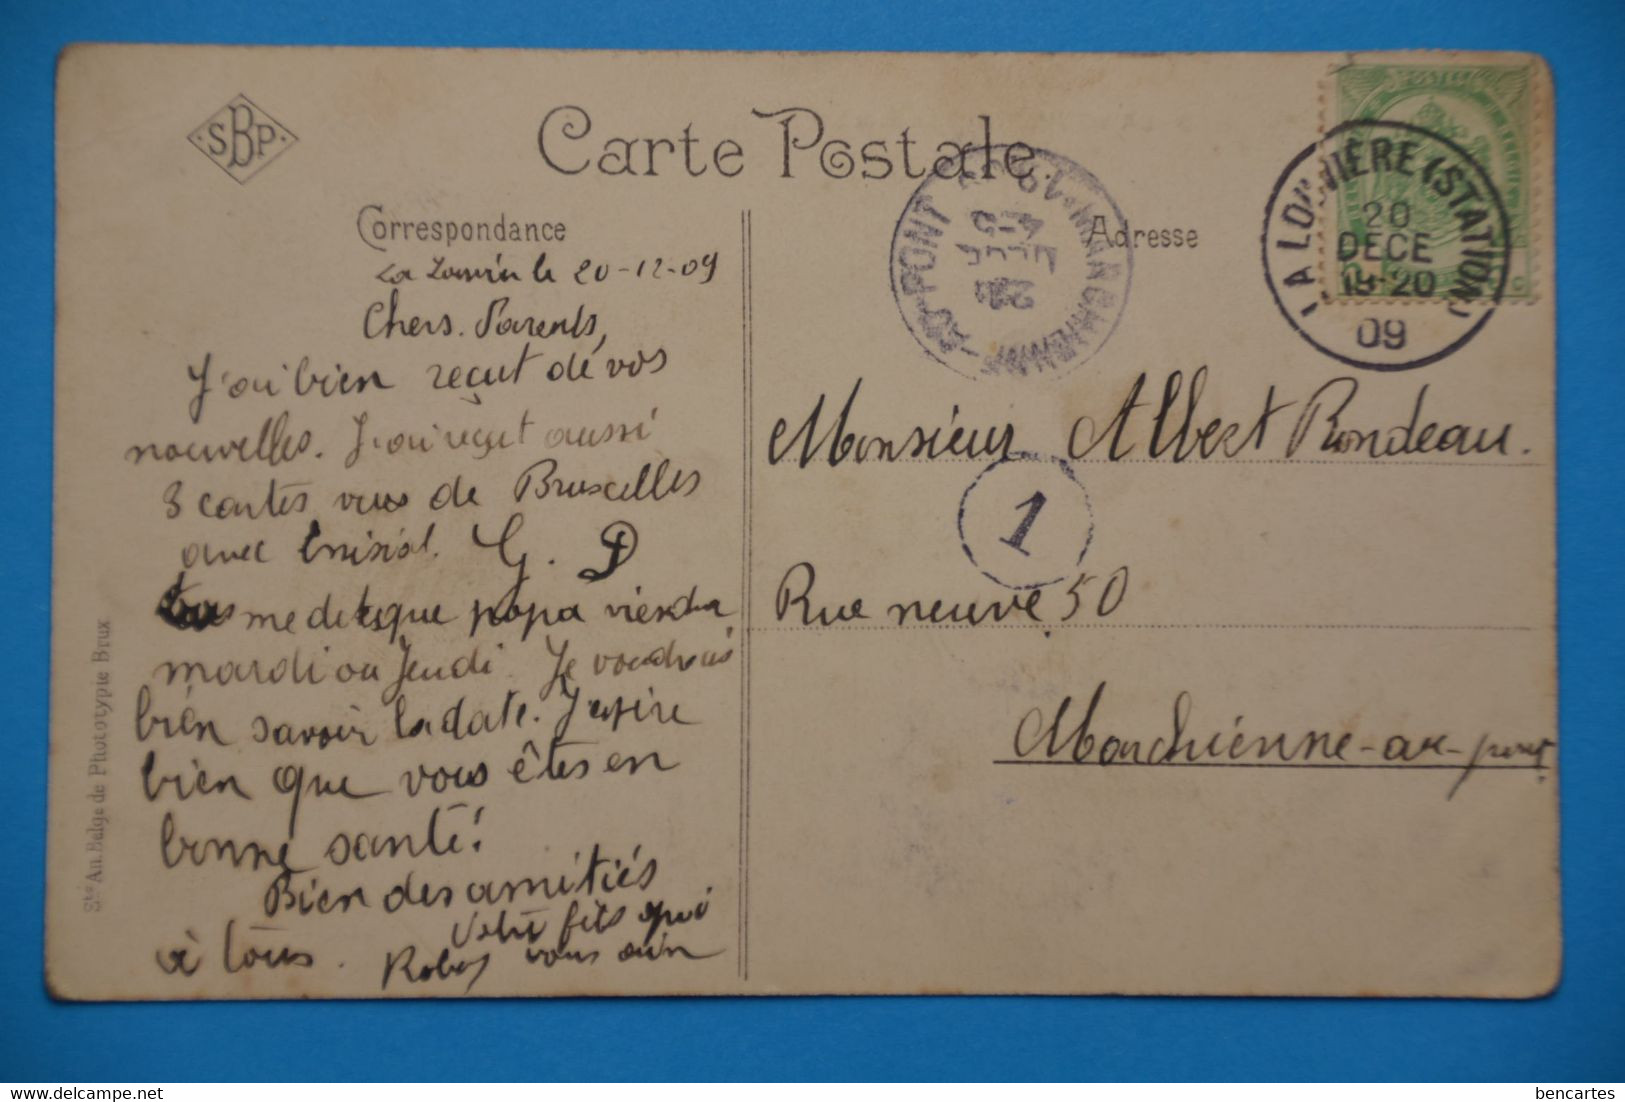 SBP
Carte Postale.
Correspondance
La Louvière le 20-12-09
Chers. Parents,
J'ai bien reçut de vos
nouvelles. J'ai reçut aussi
3 cartes vues de Bruscelles
avec Inisial. G. D
me dites que papa viendra
mardi ou Jeudi. Je voudrais
bien savoir la date. J'espère
bien que vous êtes en
bonne santé!
Bien des amitiés
à tous.
Votre fils qui
vous aim
Sté An. Belge de Phototypie Brux
Adresse
MARCHIENNE-AU-PONT
LA LOUVIÈRE (STATION)
20
DECE
19-20
09
Monsieur Albert Rondeau.
1
Rue neuve 50
Marchienne-au-pont
bencartes